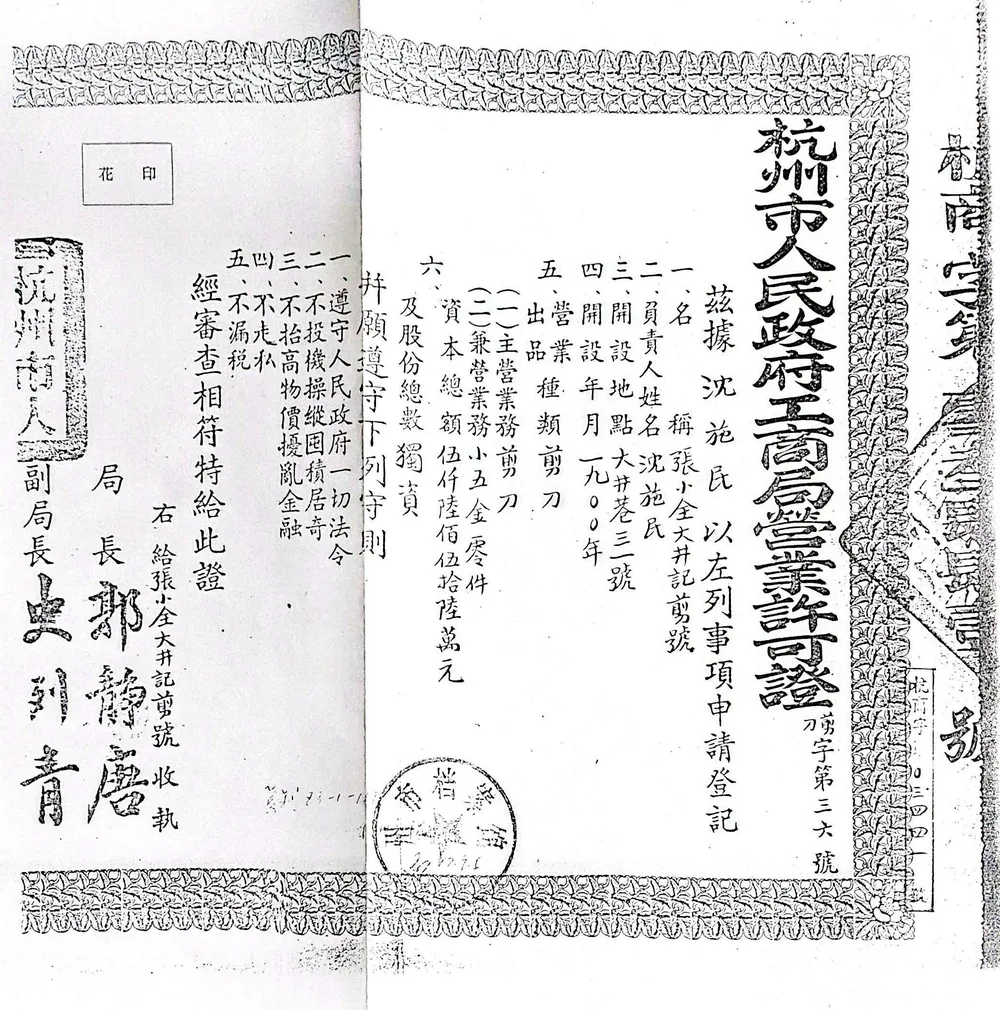 杭州市人民政府工商局營業許可證
剪刀字第三六號
茲據沈施民以左列事項申請登記
一、名稱張小全大井記剪號
二、負責人姓名沈施民
三、開設地點大井巷三號
四、開設年月一九00年
五、營業種類剪刀
出品
(一)主營業務剪刀
(二)兼營業務小五金零件
六、資本總額伍仟陸佰伍拾陸萬元
及股份總數獨資
幷願遵守下列守則
一、遵守人民政府一切法令
二、不投機操縱囤積居奇
三、不抬高物價擾亂金融
四、不走私
五、不漏税
經審查相符特給此證
右給張小全大井記剪號收執
局長郭靜唐
副局長史列青
印花
杭州市人
號